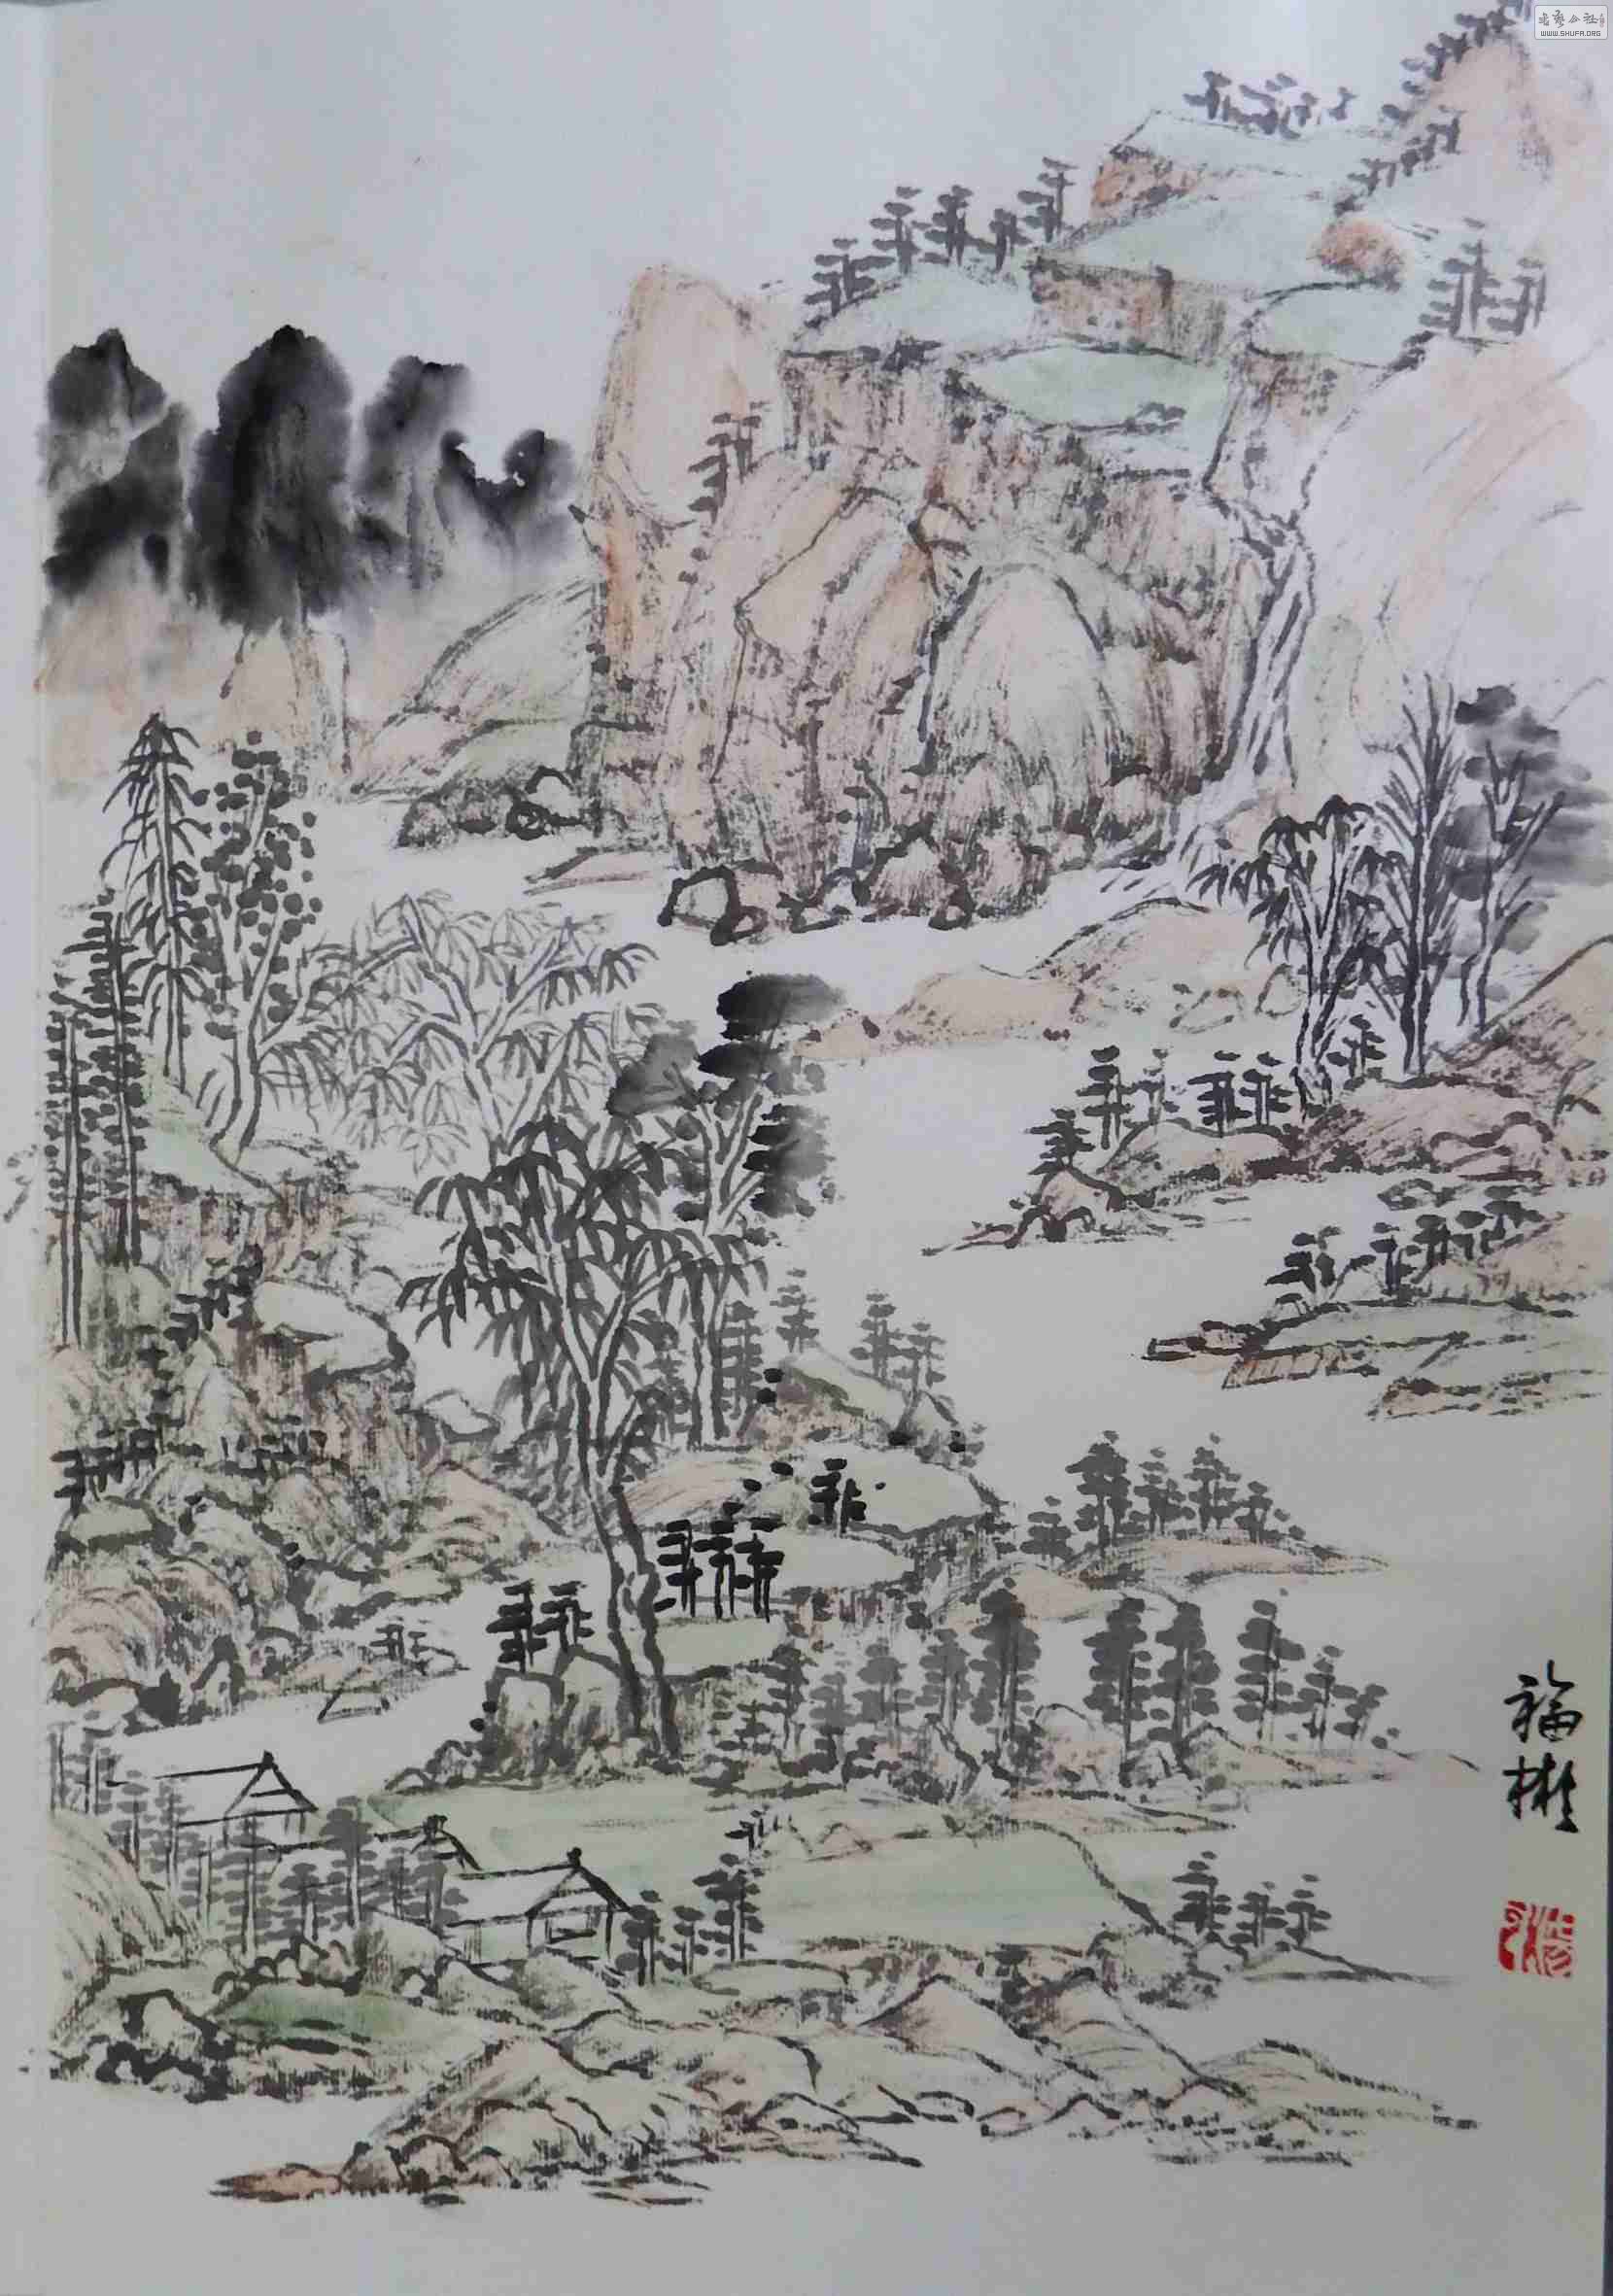 书艺公社
WWW.SHUFA.ORG
福彬